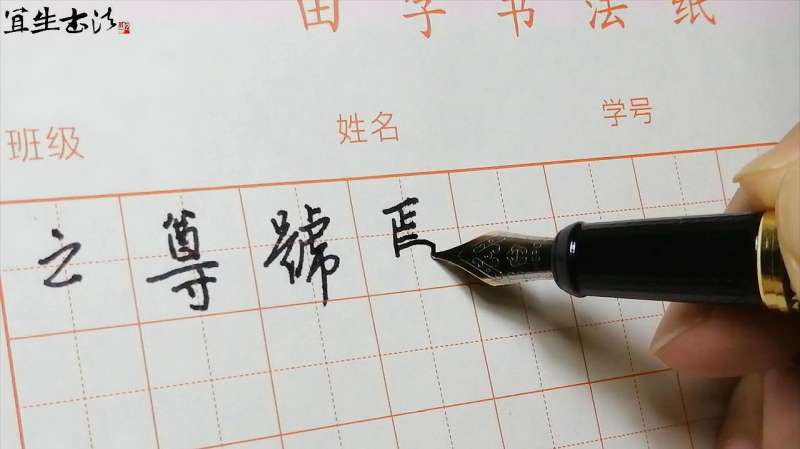 宜生书法
田字书法纸
班级 姓名 学号
之尊號